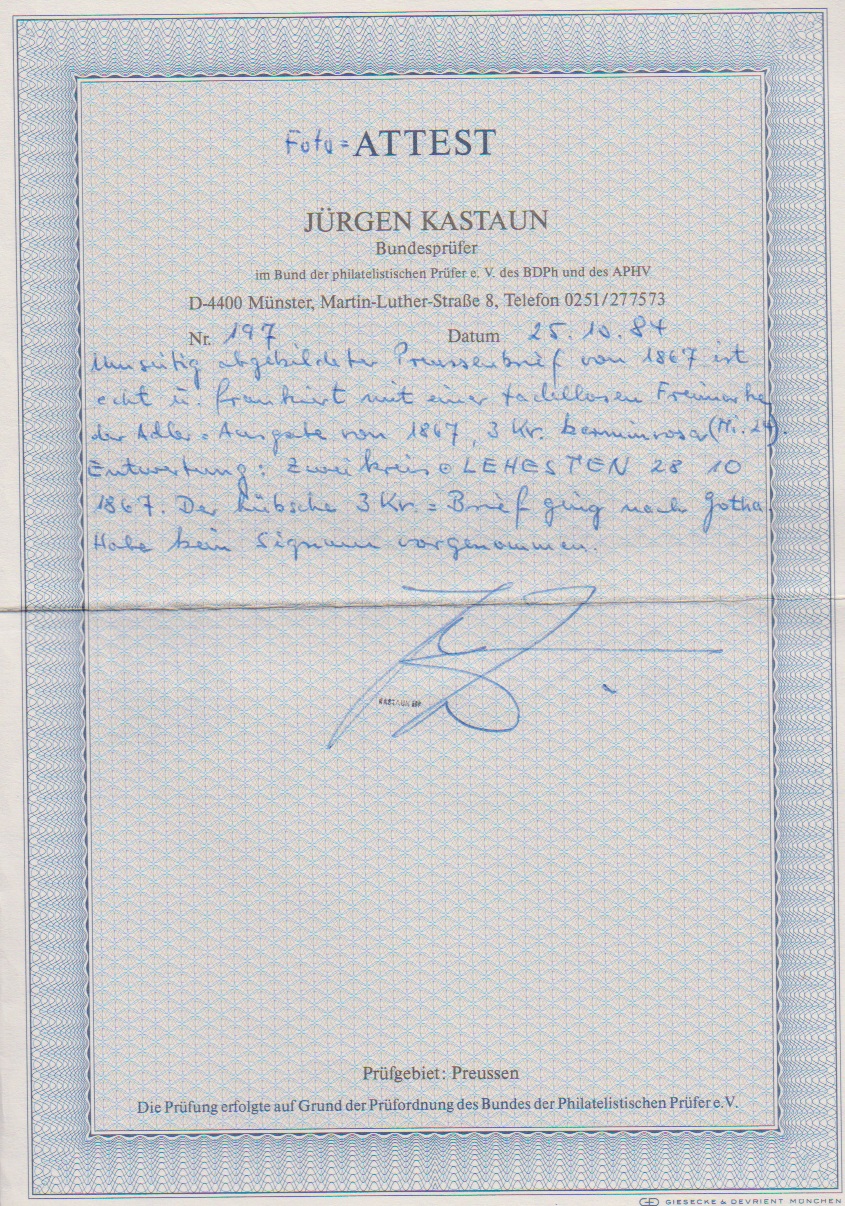 Foto=ATTEST
JÜRGEN KASTAUN
Bundesprüfer
im Bund der philatelistischen Prüfer e. V. des BDPh und des APHV
D-4400 Münster, Martin-Luther-Straße 8, Telefon 0251/277573
Nr. 197 Datum 25.10.84
Umseitig abgebildeter Preussenbrief von 1867 ist
echt u. frankiert mit einer tadellosen Freimarke
der Adler=Ausgabe von 1867, 3 Kr. karminrosa (Mi. 24).
Entwertung: Zweikreis⊙ LEHESTEN 28 10
1867. Der hübsche 3 Kr.=Brief ging nach Gotha
Habe kein Signum vorgenommen.
KASTAUN BPP
Prüfgebiet: Preussen
Die Prüfung erfolgte auf Grund der Prüfordnung des Bundes der Philatelistischen Prüfer e.V.
GIESECKE & DEVRIENT MÜNCHEN